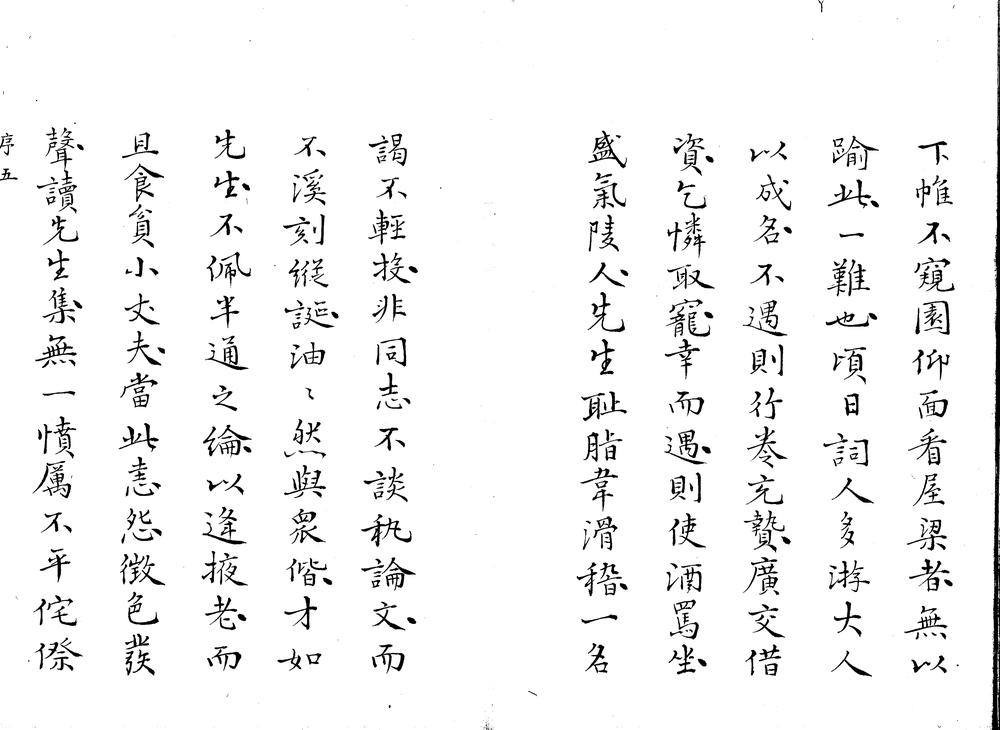 下帷不窺園仰面看屋梁者無以
踰此一難也頃日詞人多游大人
以成名不遇則行卷充贄廣交借
資乞憐取寵幸而遇則使酒罵坐
盛氣陵人先生耻脂韋滑稽一名
謁不輕投非同志不談秇論文而
不溪刻縱誕油〻然與眾偕才如
先生不佩半通之綸以逢掖老而
且食貧小丈夫當此恚怨徵色發
聲讀先生集無一憤厲不平侘傺
序五